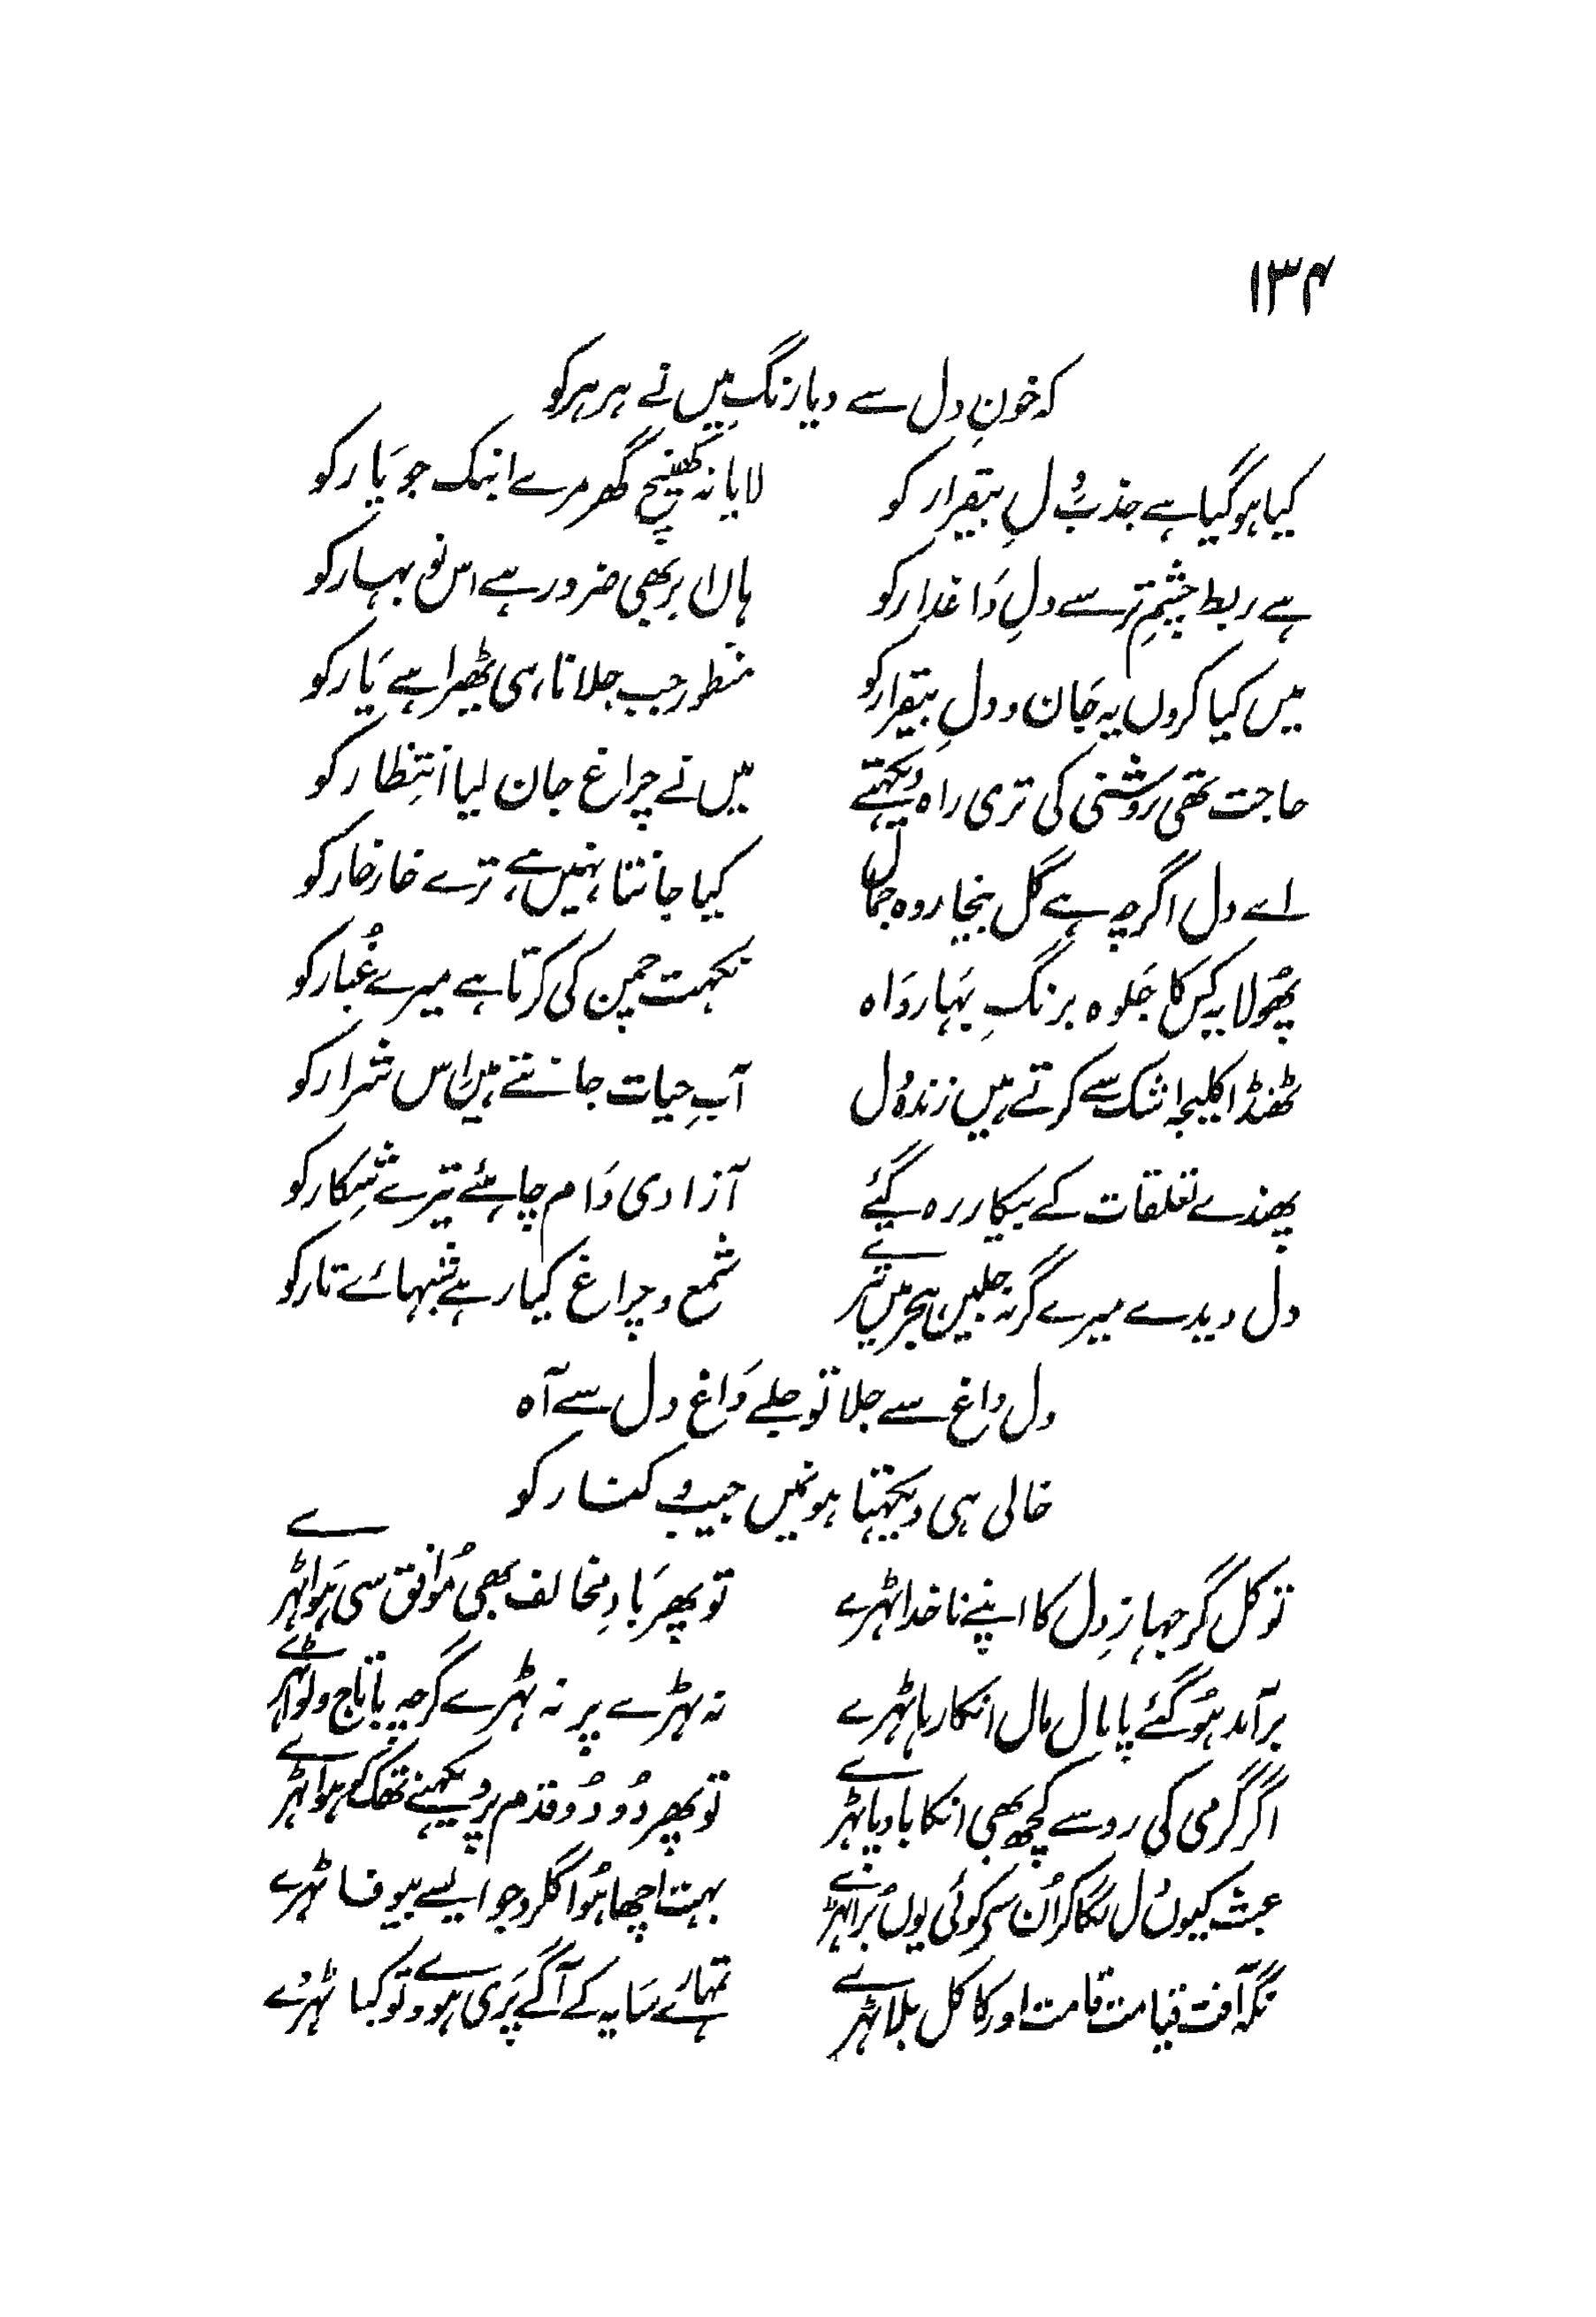 ۱۳۴
کہ خونِ دل سے دیا رنگ میں نے ہر ہر کو
کیا ہو گیا ہے جذبِ دلِ بیقرار کو لایا نہ کھینچ گھر مرے ابتک جو یَار کو
ہے ربط چشمِ تر سے دلِ دَاغدار کو ہاں ابر بھی ضرور ہے اس نو بہار کو
میں کیا کروں یہ جَان و دلِ بیقرار کو منظور جب جلانا ہی ٹھیرا ہے یَار کو
حاجت تھی رَوشنی کی تری راہ دیکھتے میں نے چراغ جان لیا انتِظار کو
اے دل اگرچہ ہے گل بیخار وہ جمال کیا جانتا نہیں ہے ترے خار خار کو
پھُولا یہ کِس کا جَلوہ برنگِ بَہار وَاہ نکہت چمن کی کرتا ہے میرے غُبار کو
ٹھنڈا کلیجہ اشک سے کرتے ہیں زندہ دل آبِ حیات جانتے ہیں اس شرار کو
پھندے تعلقات کے بیکار رہ گئے آزادی دَام چاہئے تیرے شِکار کو
دل دیدے میرے گر نہ جلیں ہجر میں ترے شمع و چراغ کیا رہے شبہائے تار کو
دل داغ سے جلا تو جلے دَاغ دل سے آہ
خالی ہی دیکھتا ہوں میں جیب و کنار کو
توکل گر جہازِ دل کا اپنے ناخدا ٹہرے تو پھر بَادِ مخالف بھی مُوافق سی ہَوا ٹہرے
برآمد ہُو گئے پامال مال انکار ہا ٹہرے نہ ٹہرے پر نہ ٹہرے گرچہ با تاج و لوا ٹہرے
اگر گرمی کی رو سے کچھ بھی انکا بادپا ٹہرے تو پھر دُو دُو قدم پر دیکھئے تھک کر ہوا ٹہرے
عبث کیوں دل لگا کر اُن سے کوئی یوں بُرا ٹہرے بہت اچھا ہُوا گلرو جو ایسے بیوفا ٹہرے
نگہ آفت قیامت قامت اور کاکل بلا ٹہرے تمہارے سَایہ کے آگے پَری ہووے تو کیا ٹہرے